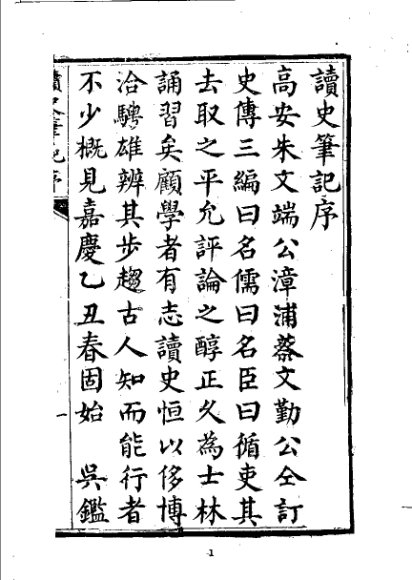 讀史筆記序
高安朱文端公漳浦蔡文勤公仝訂
史傳三編曰名儒曰名臣曰循吏其
去取之平允評論之醇正久為士林
誦習矣顧學者有志讀史恒以侈博
洽騁雄辨其步趨古人知而能行者
不少概見嘉慶乙丑春固始　吳鑑
讀史筆記序
一
1